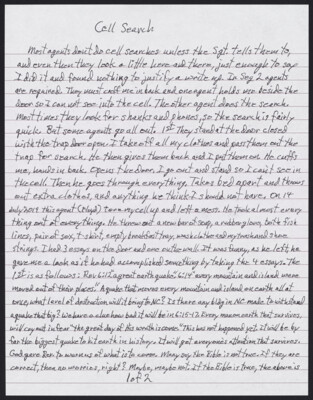 Cell Search
Most agents don't do cell searches unless the Sgt. tells them to,
and even then they look a little here and there, just enough to say
I did it and found nothing to justify a write up. In Seg 2 agents
are required. They must cuff me in back and one agent holds me beside the
door so I can not see into the cell. The other agent does the search.
Most times they look for shanks and phones, so the search is fairly
quick. But some agents go all out. 1st They stand at the door closed
with the trap door open. I take off all my clothes and pass them out the
trap for search. He then gives them back and I put them on. He cuffs
me, hands in back. Opens the door. I go out and stand so I can't see in
the cell. Then he goes through everything. Takes bed apart and throws
out extra clothes, and anything he thinks I should not have. On 14
July 2015 this agent tore my cell up and left a mess. He took almost every
thing out of every thing. He threw out a new burst bag, a rubber glove, both fish
lines, pair of sox, t-shirt, empty breakfast tray, um and he tied my trunk and shoe
strings. I had 3 essays on the door and one on the wall. It was funny, as he left, he
gave me a look as if he had accomplished something by taking the 4 essays. The
1st is as follows: Rev 6:12 "a great earthquake." 6:14 "every mountain and island were
moved out of their places." A quake that moves every mountain and island on earth all at
once, what level of destruction will it bring to NC? Is there any bldg in NC made to withstand
a quake that big? We have a clue how bad it will be in 6:15-17. Every man on earth that survives,
will cry out in fear "the great day of his wrath is come." This has not happened yet. It will be by
far the biggest quake to hit earth in history. It will put everyone's attention that survives.
God gave Rev. to warn us of what is to come. Many say the Bible is not true. If they are
correct, then no worries, right? Maybe, maybe not. If the Bible is true, the above is
1 of 2